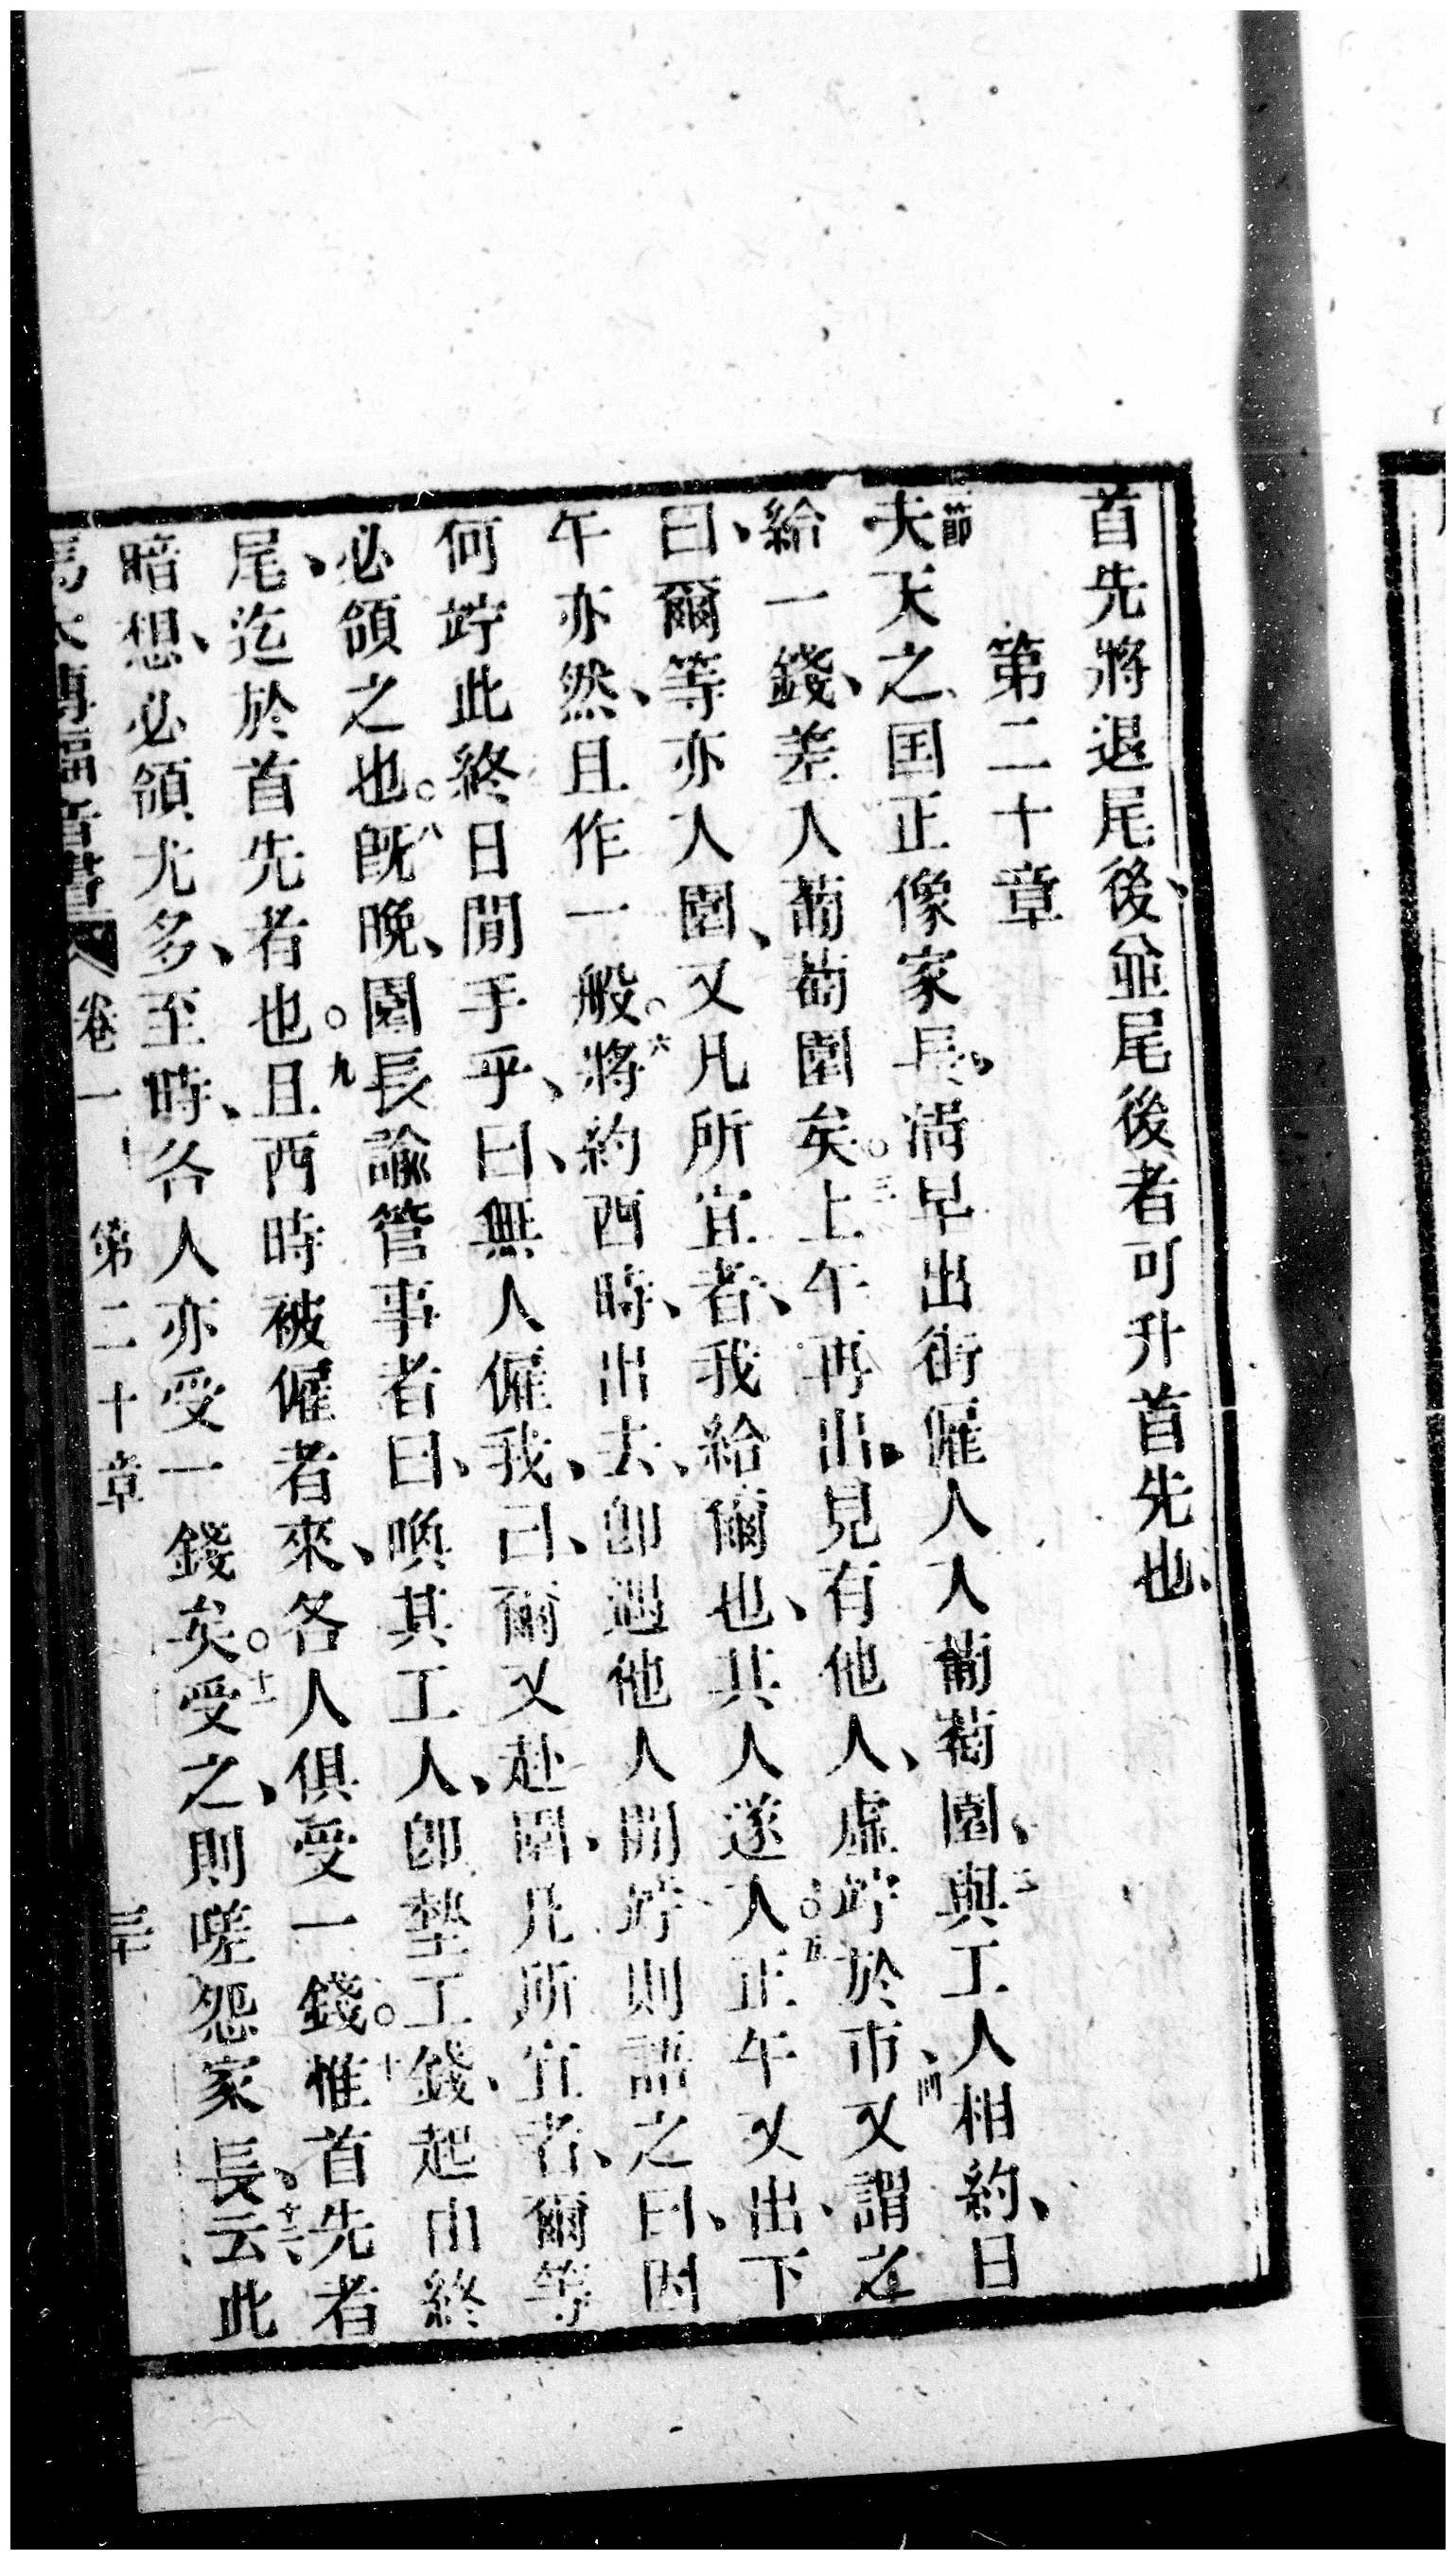 首先將退尾後、並尾後者可升首先也、
第二十章
一節夫天之国正像家長、淸早出街僱人入葡萄園、二與工人相約、日
給一錢、差人葡萄園矣。三上午再出、見有他人、虛竚於市、四又謂之
曰、爾等亦入園、又凡所宜者、我給爾也、其人遂入。五正午又出、下
午亦然、且作一般。六將約酉時、出去、卽遇他人閒竚、則謂之曰、因
何竚此終日閒手乎、曰、無人僱我、曰、爾又赴園、凡所宜者、爾等
必領之也。八旣晚、園長諭管事者曰、喚其工人、卽墊工錢、起由終
尾、迄於首先者也。九且酉時被僱者來、各人俱受一錢。十惟首先者
暗想、必領尤多、至時、各人亦受一錢矣。十一受之、則嗟怨家長、十二云、此
馬太傳福音書 卷一 第二十章 三十